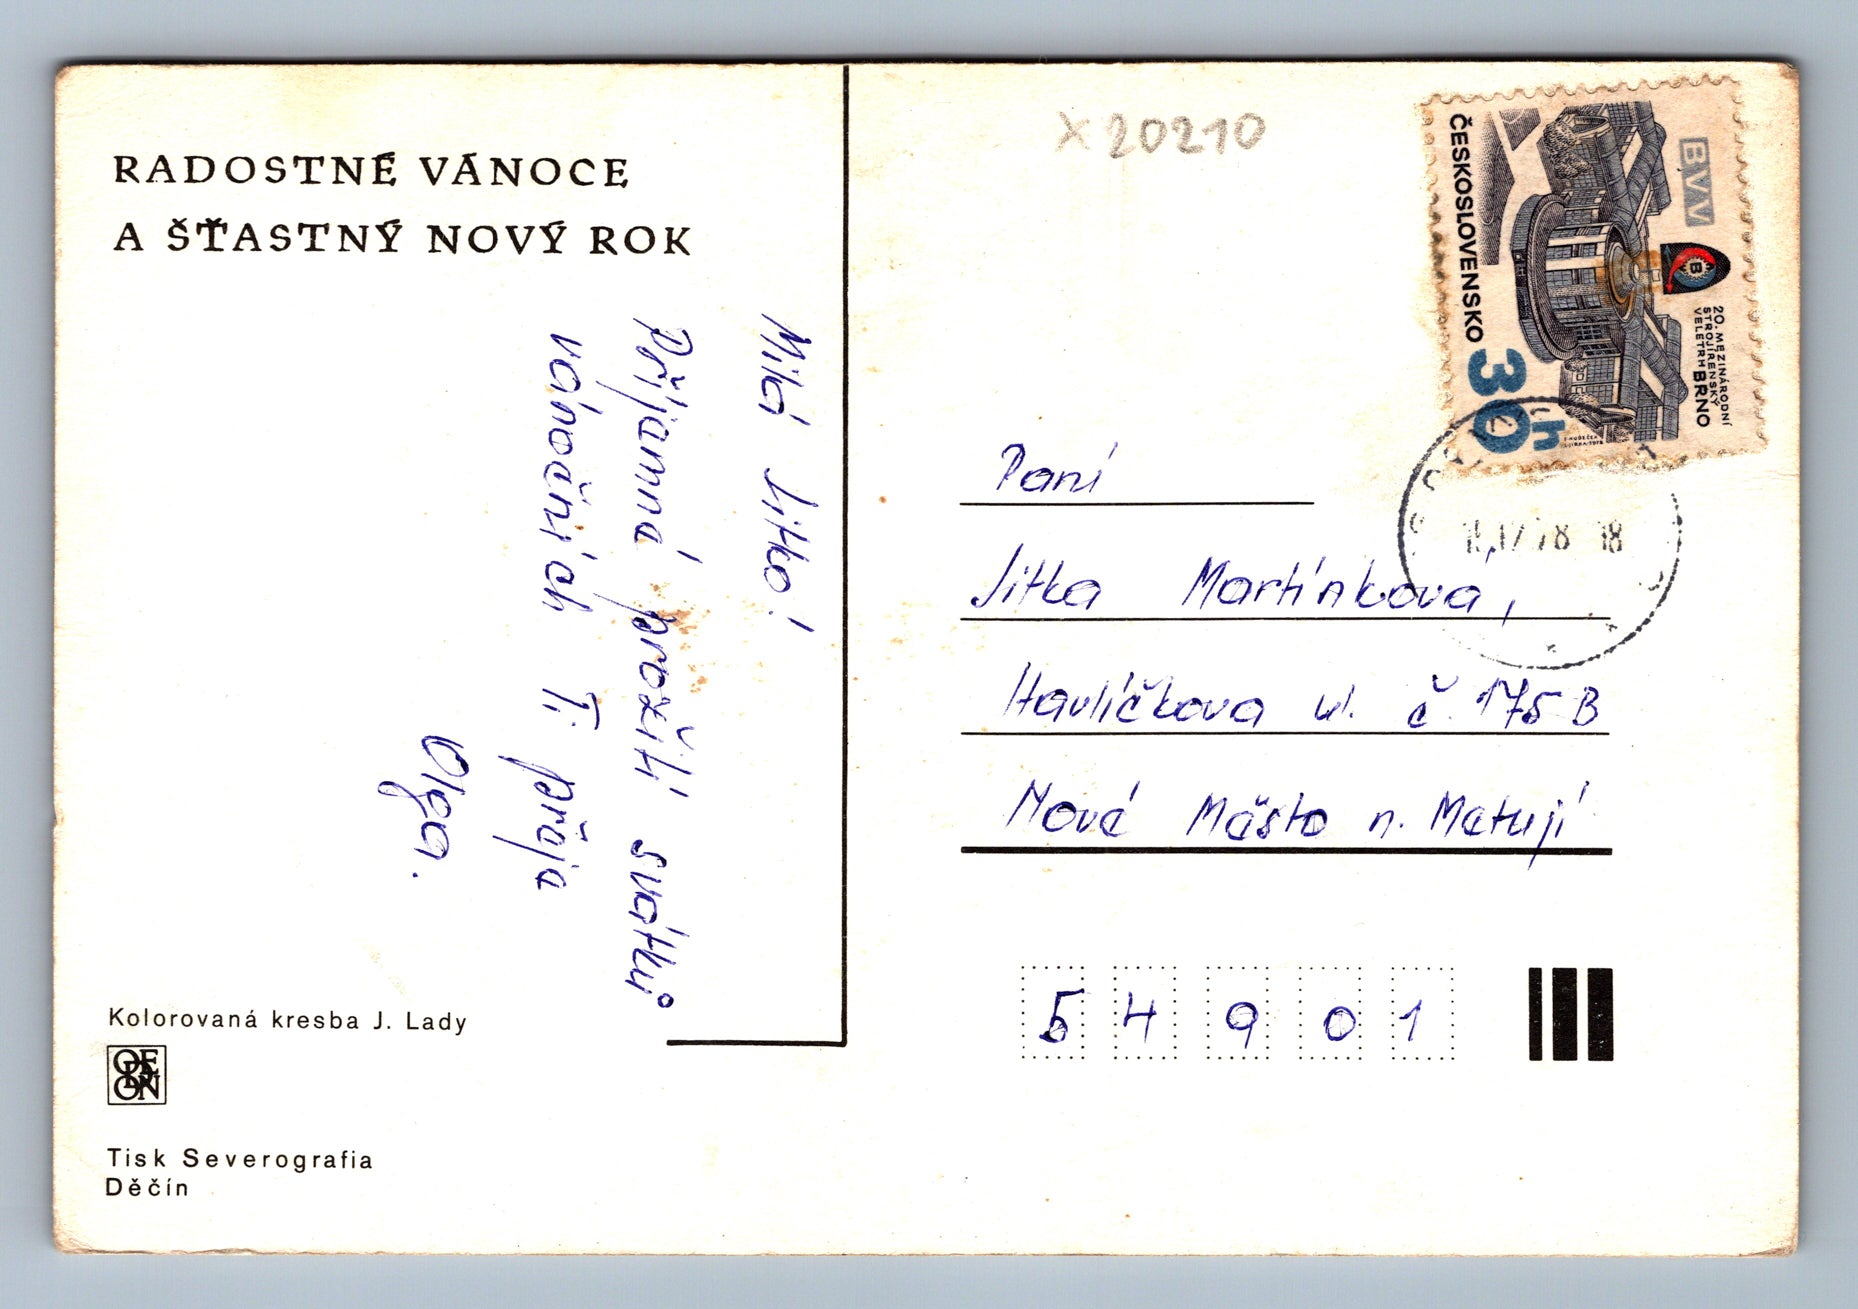 RADOSTNÉ VÁNOCE
A ŠŤASTNÝ NOVÝ ROK
Milá Jitko!
Příjamná prožití svátků
vánočních Ti přeje
Olga.
Kolorovaná kresba J. Lady
ODEON
Tisk Severografia
Děčín
X20210
ČESKOSLOVENSKO
30h
BVV
20. MEZINÁRODNÍ
STROJÍRENSKÝ
VELETRH BRNO
12 78 18
Paní
Jitka Martínkova,
Havlíčkova ul. č. 175 B
Nové Město n. Metují
54901